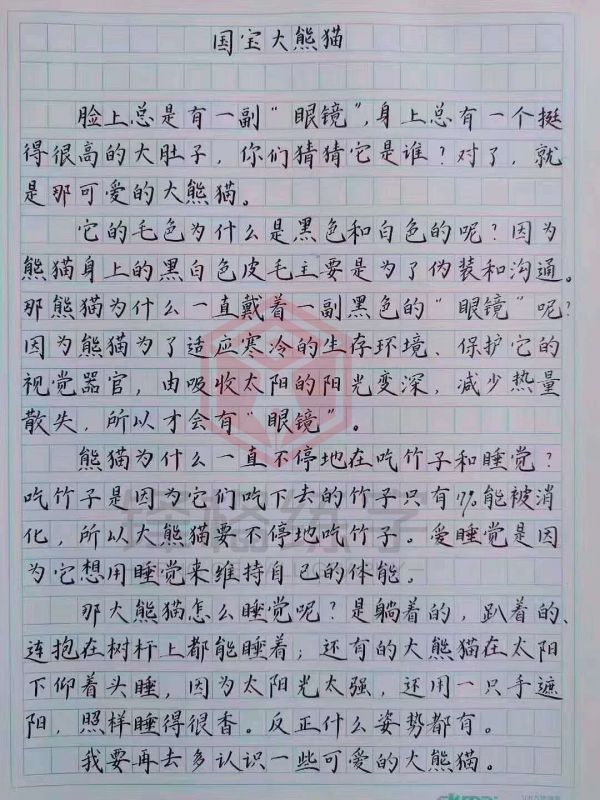 国宝大熊猫
脸上总是有一副“眼镜”,身上总有一个挺
得很高的大肚子，你们猜猜它是谁？对了，就
是那可爱的大熊猫。
它的毛色为什么是黑色和白色的呢？因为
熊猫身上的黑白色皮毛主要是为了伪装和沟通。
那熊猫为什么一直戴着一副黑色的“眼镜”呢？
因为熊猫为了适应寒冷的生存环境、保护它的
视觉器官，由吸收太阳的阳光变深，减少热量
散失，所以才会有“眼镜”。
熊猫为什么一直不停地在吃竹子和睡觉？
吃竹子是因为它们吃下去的竹子只有17%能被消
化，所以大熊猫要不停地吃竹子。爱睡觉是因
为它想用睡觉来维持自己的体能。
那大熊猫怎么睡觉呢？是躺着的，趴着的、
连抱在树杆上都能睡着；还有的大熊猫在太阳
下仰着头睡，因为太阳光太强，还用一只手遮
阳，照样睡得很香。反正什么姿势都有。
我要再去多认识一些可爱的大熊猫。